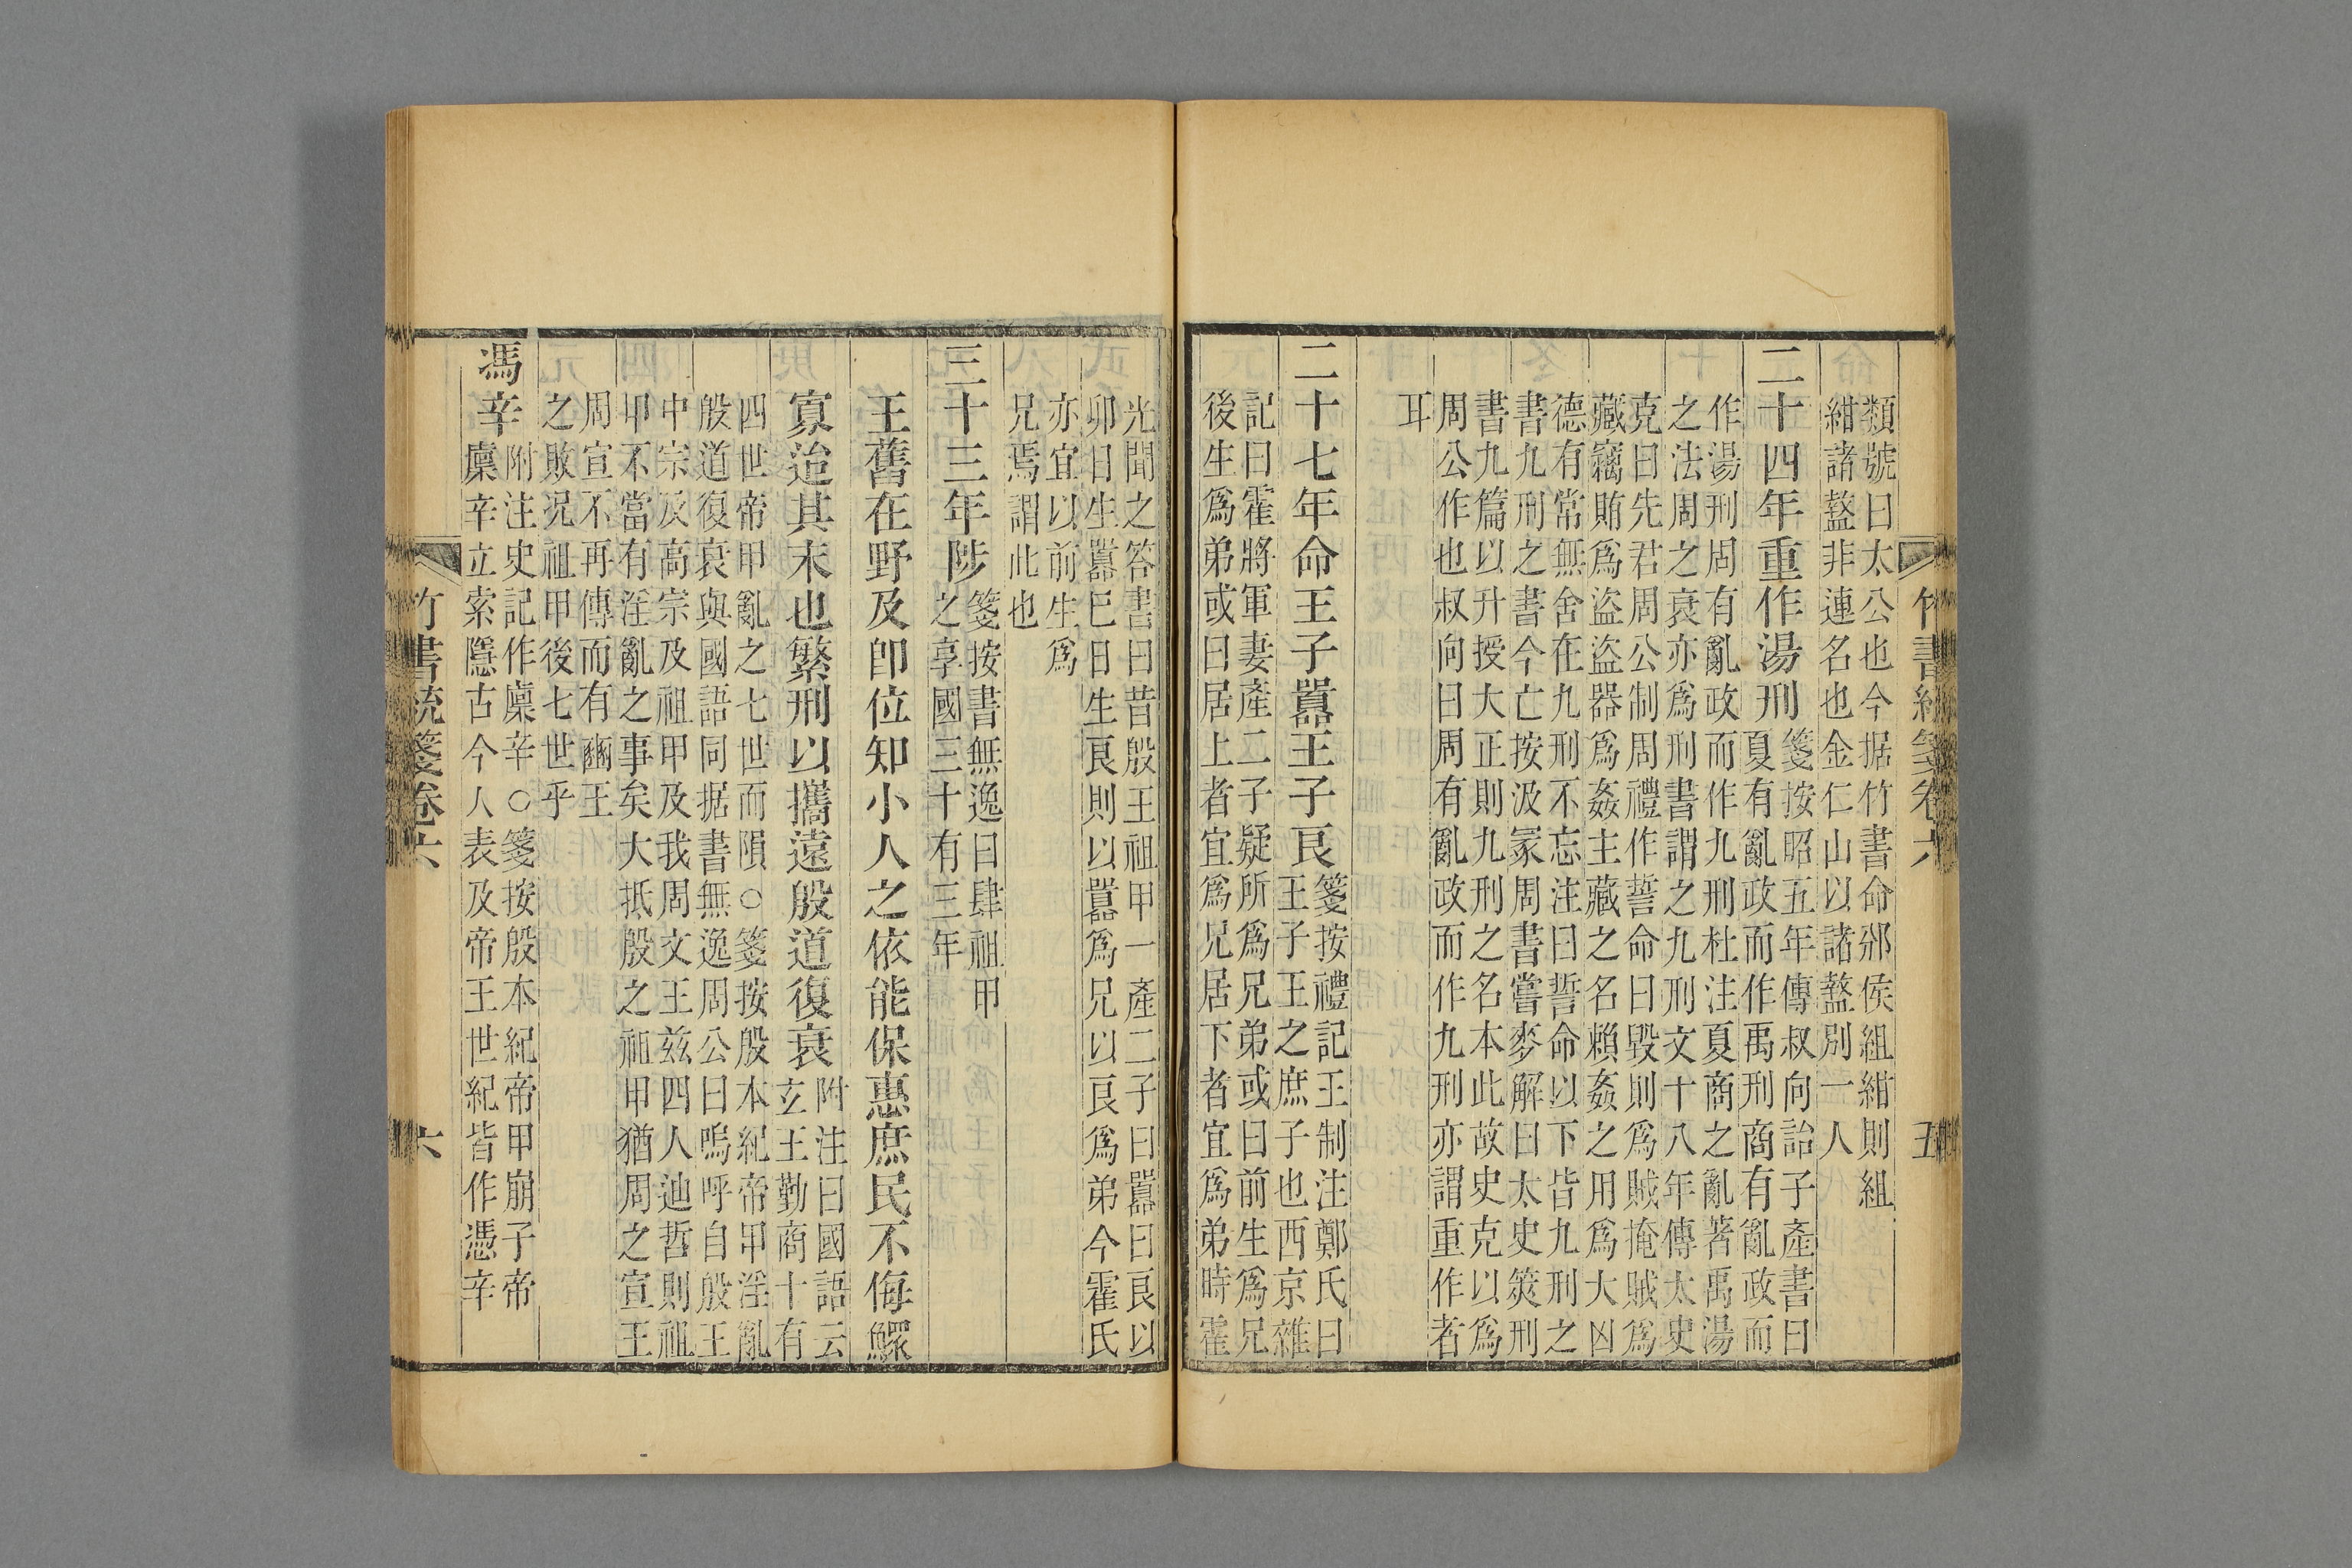 竹書統箋卷六
五
類號曰太公也今据竹書命邠侯組紺則組
紺諸盩非連名也金仁山以諸盩別一人
二十四年重作湯刑
箋按昭五年傳叔向詒子產書曰
夏有亂政而作禹刑商有亂政而
作湯刑周有亂政而作九刑杜注夏商之亂著禹湯
之法周之衰亦爲刑書謂之九刑文十八年傳太史
克曰先君周公制周禮作誓命曰毀則爲賊掩賊爲
藏竊賄爲盜盜器爲姦主藏之名賴姦之用爲大凶
德有常無舍在九刑不忘注曰誓命以下皆九刑之
書九刑之書今亡按汲冢周書嘗麥解曰太史筴刑
書九篇以升授大正則九刑之名本此故史克以爲
周公作也叔向曰周有亂政而作九刑亦謂重作者
耳
二十七年命王子囂王子良
箋按禮記王制注鄭氏曰
王子王之庶子也西京雜
記曰霍將軍妻產二子疑所爲兄弟或曰前生爲兄
後生爲弟或曰居上者宜爲兄居下者宜爲弟時霍
光聞之答書曰昔殷王祖甲一產二子曰囂曰良以
卯日生囂巳日生良則以囂爲兄以良爲弟今霍氏
亦宜以前生爲
兄焉謂此也
三十三年陟
箋按書無逸曰肆祖甲
之享國三十有三年
王舊在野及卽位知小人之依能保惠庶民不侮鰥
寡迨其末也繁刑以攜遠殷道復衰
附注曰國語云
玄王勤商十有
四世帝甲亂之七世而隕○箋按殷本紀帝甲淫亂
殷道復衰與國語同据書無逸周公曰嗚呼自殷王
中宗及高宗及祖甲及我周文王兹四人迪哲則祖
甲不當有淫亂之事矣大抵殷之祖甲猶周之宣王
周宣不再傳而有豳王
之敗況祖甲後七世乎
馮辛
附注史記作廩辛○箋按殷本紀帝甲崩子帝
廩辛立索隱古今人表及帝王世紀皆作憑辛
竹書統箋卷六
六